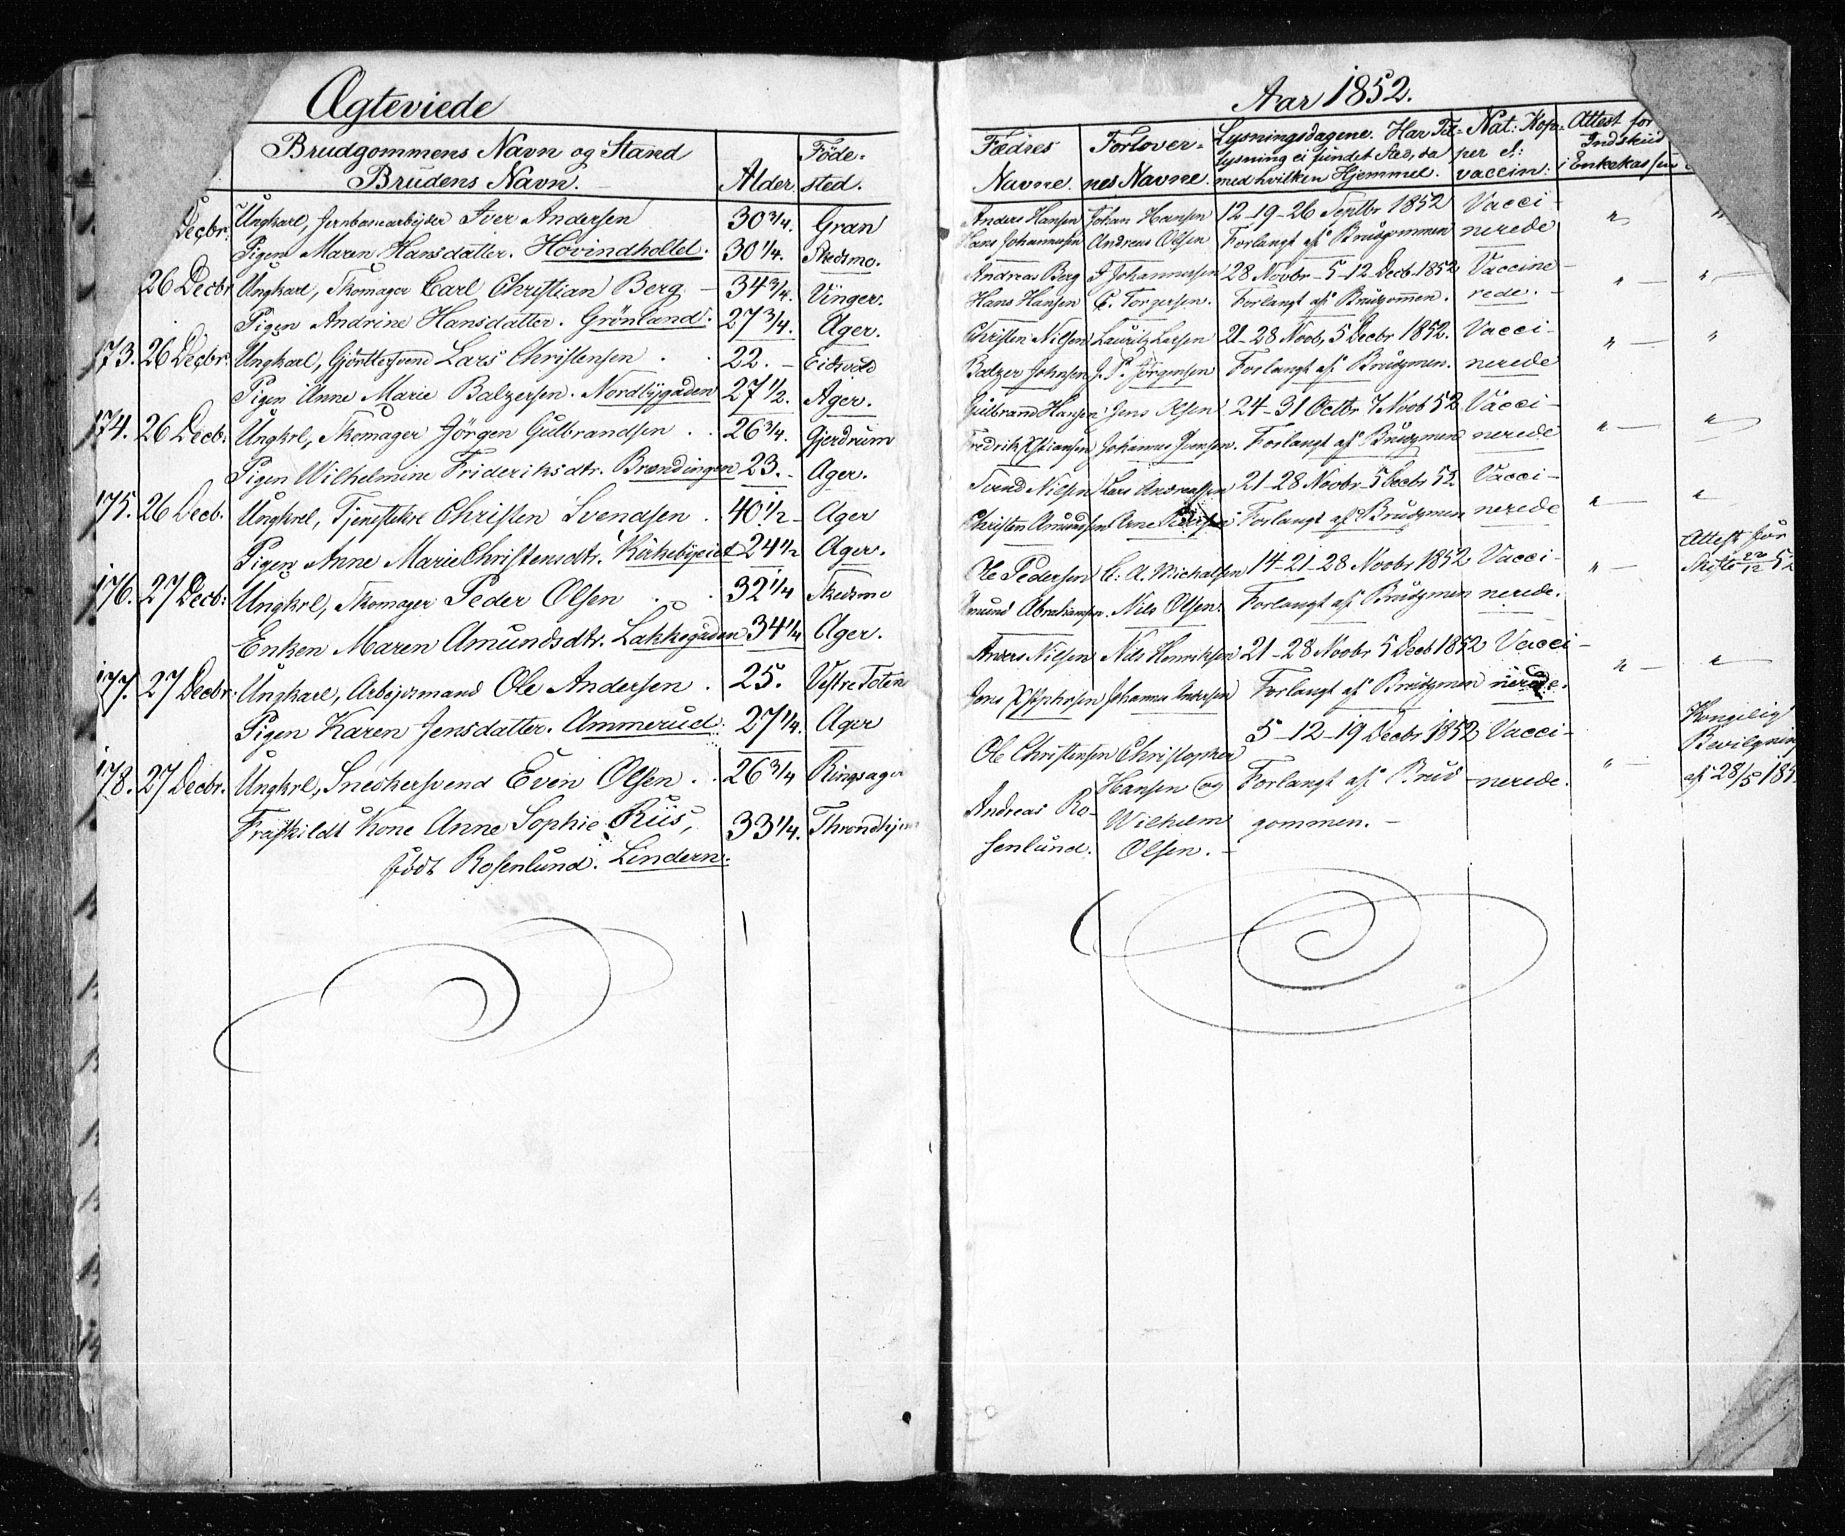 Ægteviede
Brudgommens Navn og Stand
Brudens Navn.
Alder.
Føde-
sted.
Decbr. Ungkarl, Jernbanearbejder Iver Andersen 30 3/4. Gran
Pigen Maren Hansdatter. Hovindholtet. 30 1/4. Skedsmo.
26 Decbr Ungkarl, Skomager Carl Christian Berg 34 3/4. Vinger.
Pigen Andrine Hansdatter. Grönland. 27 3/4. Ager.
173. 26 Decbr. Ungkarl, Gjörtlersvend Lars Christensen 22. Eidsvold
Pigen Anne Marie Balzersen. Nordbygaden 27 1/2. Ager.
174. 26 Decb: Ungkrl, Skomager Jörgen Gulbrandsen 26 3/4. Gjerdrum
Pigen Wilhelmine Frideriksdtr. Brændingen 23. Ager.
175. 26 Decb. Ungkrl, Tjenestekrl Christen Svendsen 40 1/2 Ager
Pigen Anne Marie Christensdtr. Kirkebyeiet 24 1/2 Ager.
176. 27 Decb: Ungkrl, Skomager Peder Olsen 32 1/4 Skedsmo
Enken Maren Amundsdtr. Lakkegaden 34 1/4 Ager.
177. 27 Decbr. Ungkarl, Arbejdsmand Ole Andersen 25. Vestre Toten
Pigen Karen Jensdatter. Ammerud. 27 1/4. Ager
178. 27 Decbr. Ungkrl, Snedkersvend Even Olsen 26 3/4 Ringsager
Fraskildt Kone Anne Sophie Riis, 33 1/4. Throndhjem
födt Rosenlund. Lindern.
Aar 1852.
Fædres
Navne.
Forlover-
nes Navne.
Lysningsdagene. Har Til-
lysning ei fundet Sted, da
med hvilken Hjemmel.
Nat: Kop-
per el:
vaccin:
Attest for
Indskud
i Enkekassen
Anders Hansen Johan Hansen 12-19-26 Septbr 1852 Vacci- "
Hans Johannesen Andreas Olsen Forlangt af Brudgommen nerede
Andreas Berg F. Johannesen 28 Novbr-5-12 Decb. 1852 Vaccine- "
Hans Hansen C. Torgersen. Forlangt af Brudgommen. rede.
Christen Nilsen Lauritz Larsen 21-28 Novb, 5 Decbr 1852. Vacci- "
Balzer Johnsen J. P. Jörgensen Forlangt af Brudgmen. nerede
Gulbrand Hansen Jens Olsen 24-31 Octbr 7 Novb 52 Vacci- "
Fredrik Christiansen Johannes Svensen. Forlangt af Brudgmen nerede
Svend Nilsen Lars Andreassen 21-28 Novbr-5 Decbr 52 Vacci- "
Christen Amundsen Arne Forlangt af Brudgmen nerede
Ole Pedersen C. A. Michalsen 14-21-28 Novbr 1852 Vacci- " Attest for
Skifte 22/12 52
Amund Abrahamsen. Nils Olsen. Forlangt af Brudgmen nerede.
Anders Nilsen Nils Henriksen 21-28 Novbr 5 Decb 1852 Vacci- "
Jens Johannes Andersen Forlangt af Brudgmen nerede.
Ole Christensen Christopher 5-12-19 Decbr 1852 Vacci- Kongelig
Bevilgning
Hansen og Forlangt af Brud- nerede. " af 28/5 185
Andreas Ro- Wilhelm gommen.
senlund. Olsen.